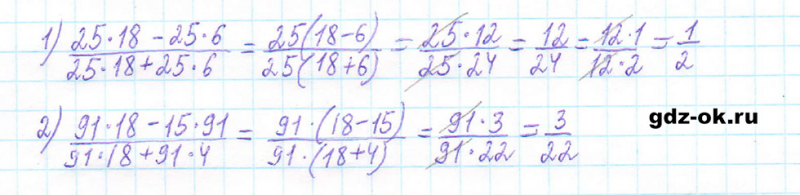 1) (25·18 − 25·6)/(25·18 + 25·6) = 25(18−6)/25(18+6) = 25·12/25·24 = 12/24 = 12·1/12·2 = 1/2
2) (91·18 − 15·91)/(91·18 + 91·4) = 91·(18−15)/91·(18+4) = 91·3/91·22 = 3/22
gdz-ok.ru